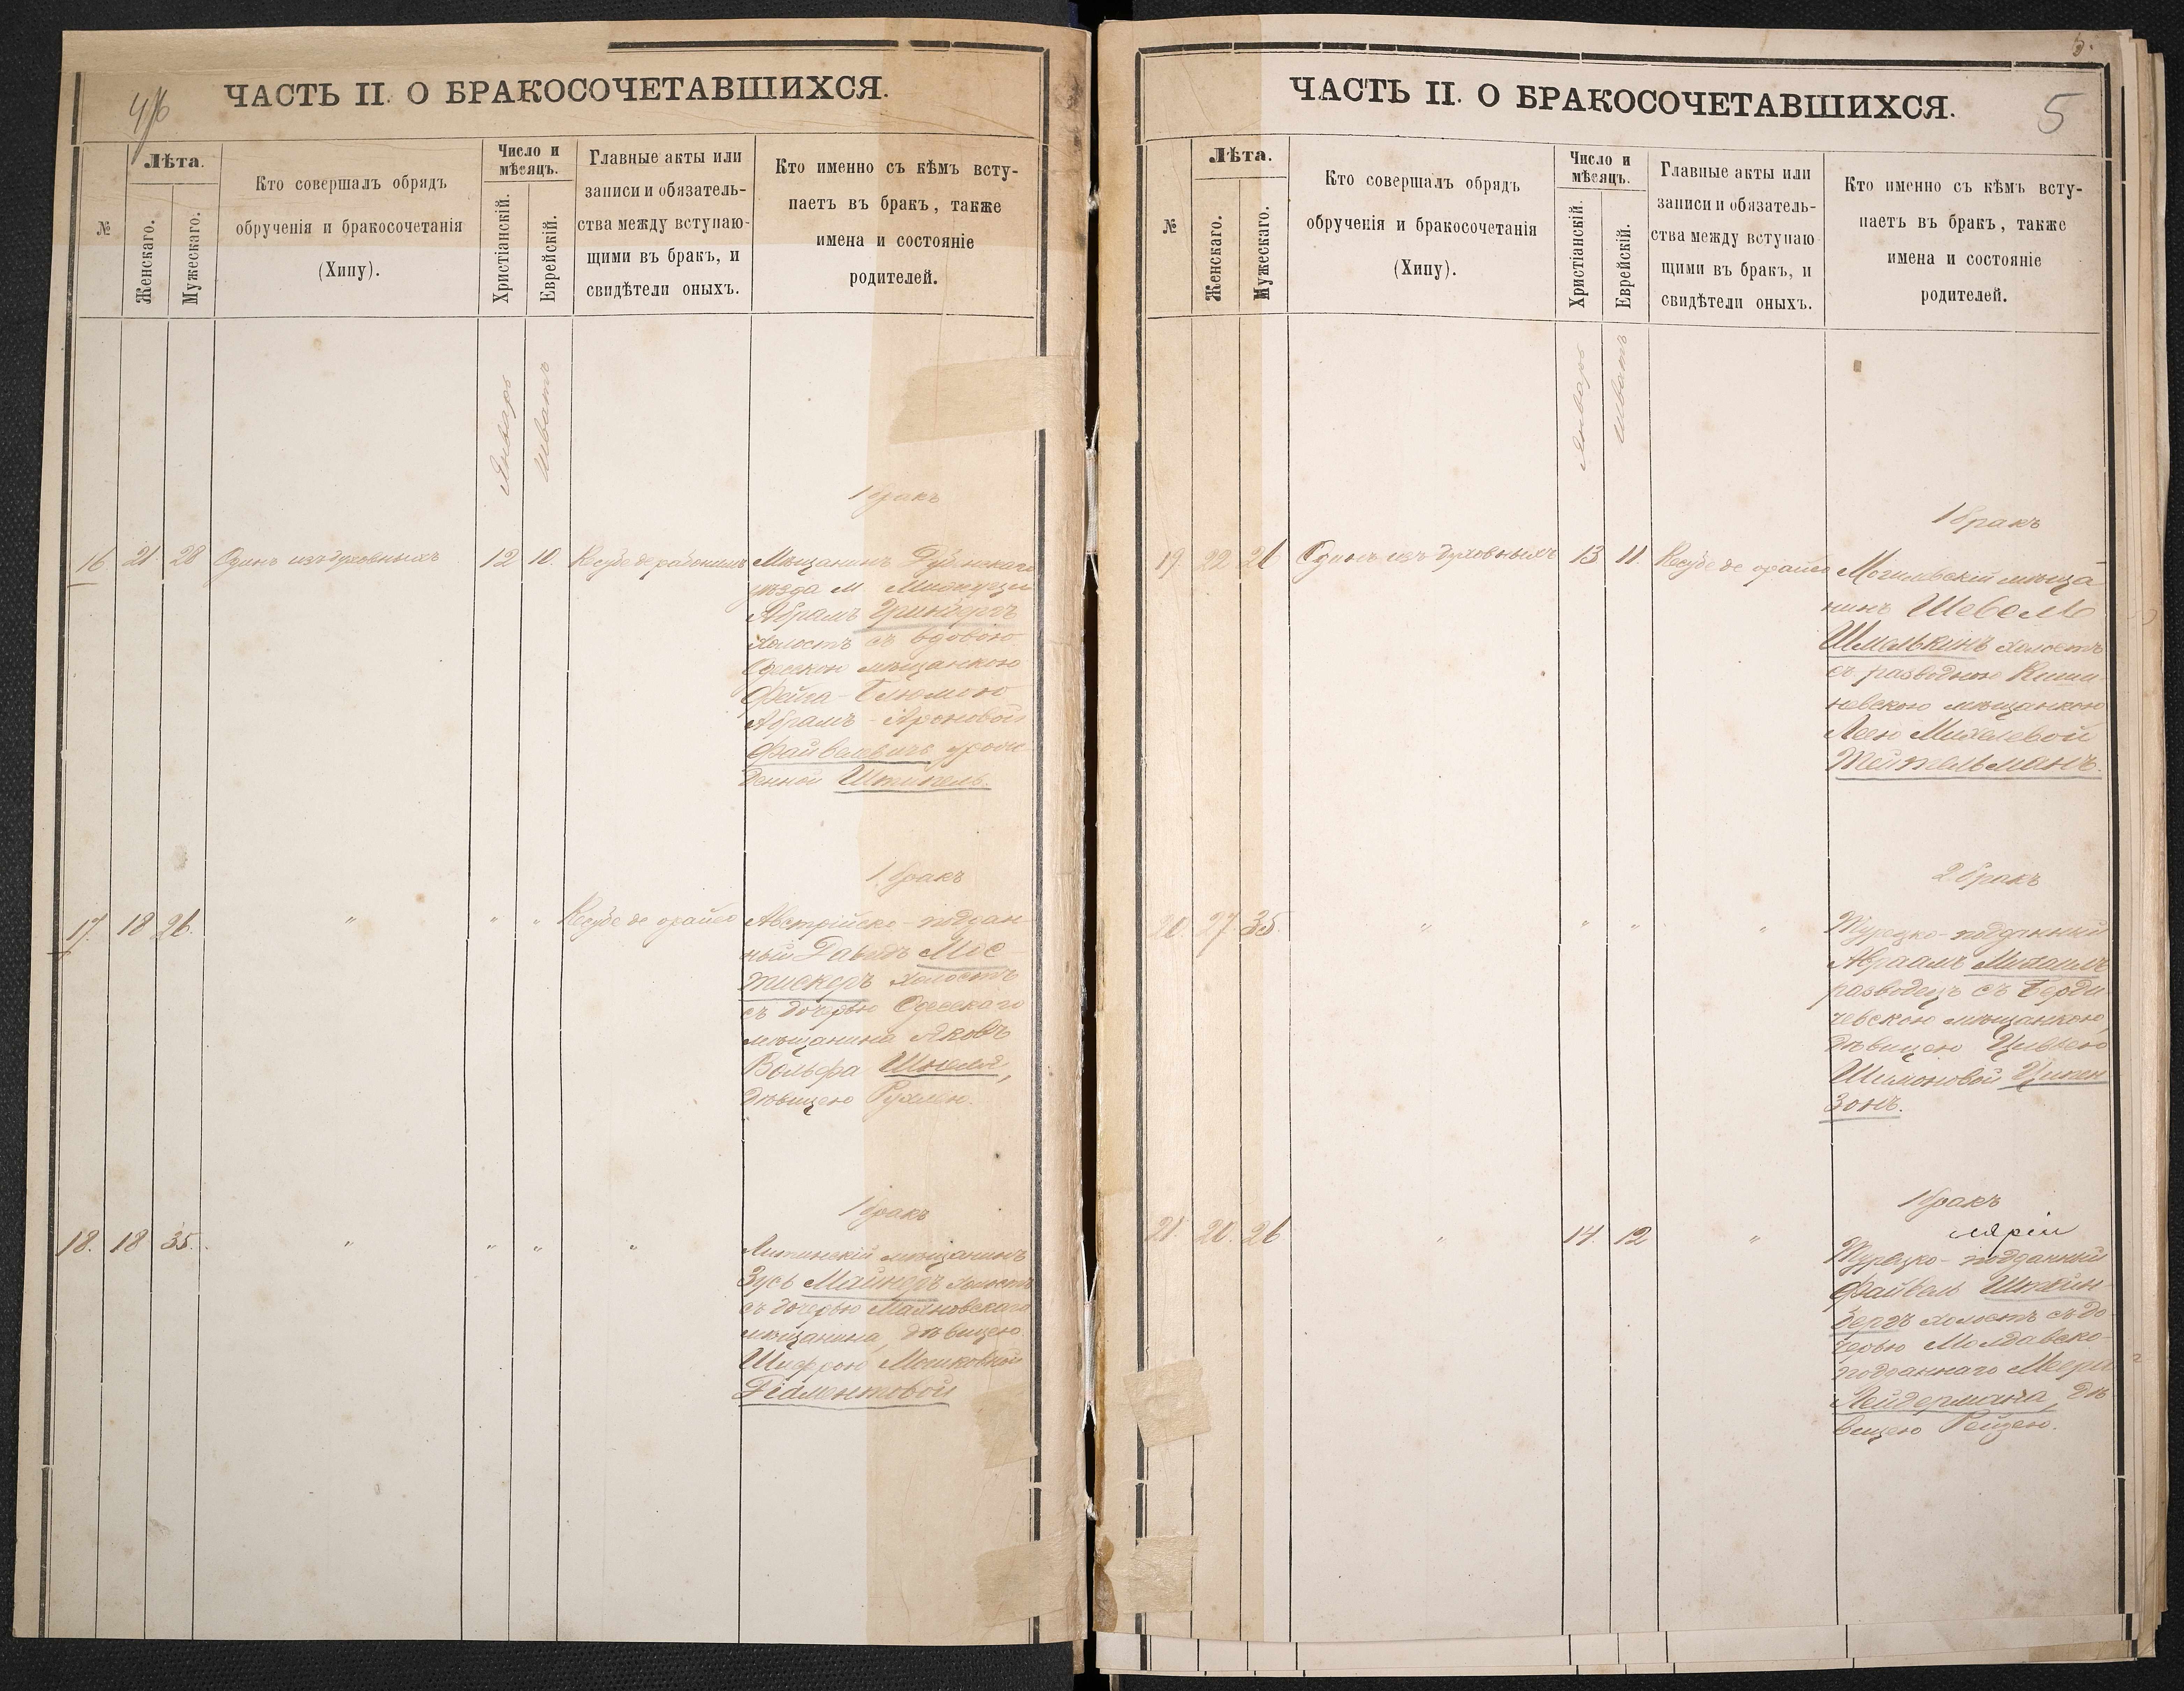 4/6
ЧАСТЬ II. О БРАКОСОЧЕТАВШИХСЯ.
№
Лѣта.
Женскаго.
Мужескаго.
Кто совершалъ обрядъ
обрученія и бракосочетанія
(Хипу).
Число и
мѣсяцъ.
Христіанскій.
Еврейскій.
Главные акты или
записи и обязатель-
ства между вступаю-
щими въ бракъ, и
свидѣтели оныхъ.
Кто именно съ кѣмъ всту-
паетъ въ бракъ, также
имена и состояніе
родителей.
Январь
Шватъ
1 бракъ
16 21. 28 Одинъ изъ духовныхъ 12 10. Мѣщанинъ Дубенскаго
уѣзда м
Абрамъ
холостъ съ вдовою
Одесскою мѣщанкою
Фейга-Блюмою
Абрамъ-Ароновой
урож
денной Штипель.
1 бракъ
17. 18 26. " " " Кесубе де орайсо Австрійско-поддан-
ный Давидъ Мос
тискеръ холостъ
съ дочерью Одесскаго
мѣщанина Яковъ
Вольфа Шнеля,
дѣвицею Рухлею.
1 бракъ
18. 18 35. " " " " Литинскій мѣщанинъ
Зусь Майндъ холостъ
съ дочерью Маяковскаго
мѣщанина, дѣвицею
Шифрою Мошковной
Діамантовой
5.
5
ЧАСТЬ II. О БРАКОСОЧЕТАВШИХСЯ.
№
Лѣта.
Женскаго.
Мужескаго.
Кто совершалъ обрядъ
обрученія и бракосочетанія
(Хипу).
Число и
мѣсяцъ.
Христіанскій.
Еврейскій.
Главные акты или
записи и обязатель-
ства между вступаю
щими въ бракъ, и
свидѣтели оныхъ.
Кто именно съ кѣмъ всту-
паетъ въ бракъ, также
имена и состояніе
родителей.
Январь
Шватъ
1 бракъ
19. 22 26 Одинъ изъ духовныхъ 13 11. Кесубе де орайсо Могилевскій мѣща
нинъ Шевель
Шмелькинъ холостъ
съ разводною Киши
невскою мѣщанкою
Леею Михелевой
Тейтельманъ.
2 бракъ
20. 27. 35. " " " " Турецко-подданный
Авраамъ Михаилъ
разводецъ съ Берди
чевскою мѣщанкою,
дѣвицею Цивіею
Шимоновой Ципен
зонъ.
1 бракъ
21. 20. 26 " 14. 12 " Турецко-подданный
Файвель Штейн
бергъ холостъ съ до
черью Молдавско-
подданнаго Меера
Лейдермана, дѣ
вицею Рейзею.